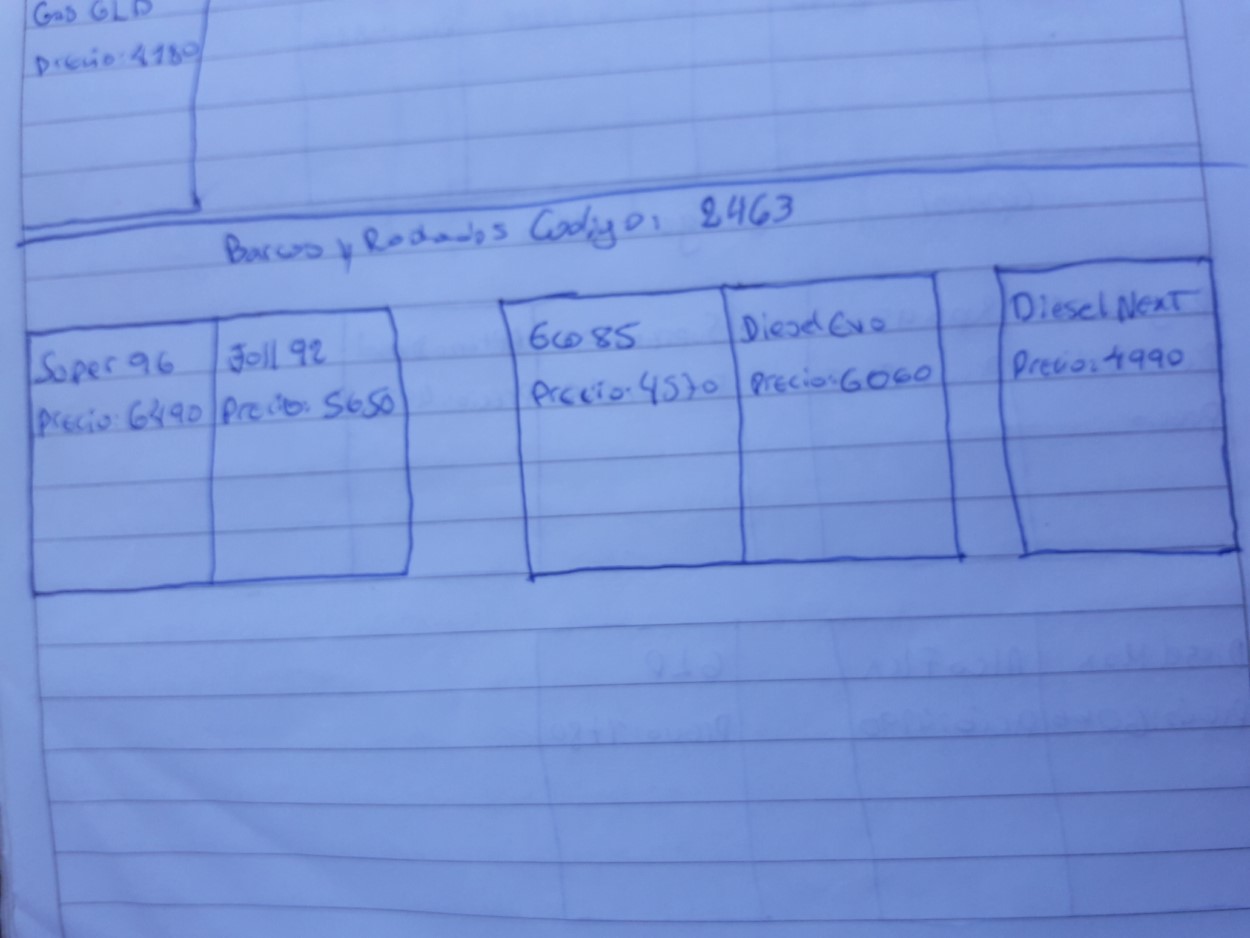 Gas GLP
Precio: 4180
Barcos y Rodados Codigo: 2463
Super 96
Precio: 6490
Foll 92
Precio: 5650
Eco 85
Precio: 4570
Diesel Evo
Precio: 6060
Diesel Next
Precio: 4990